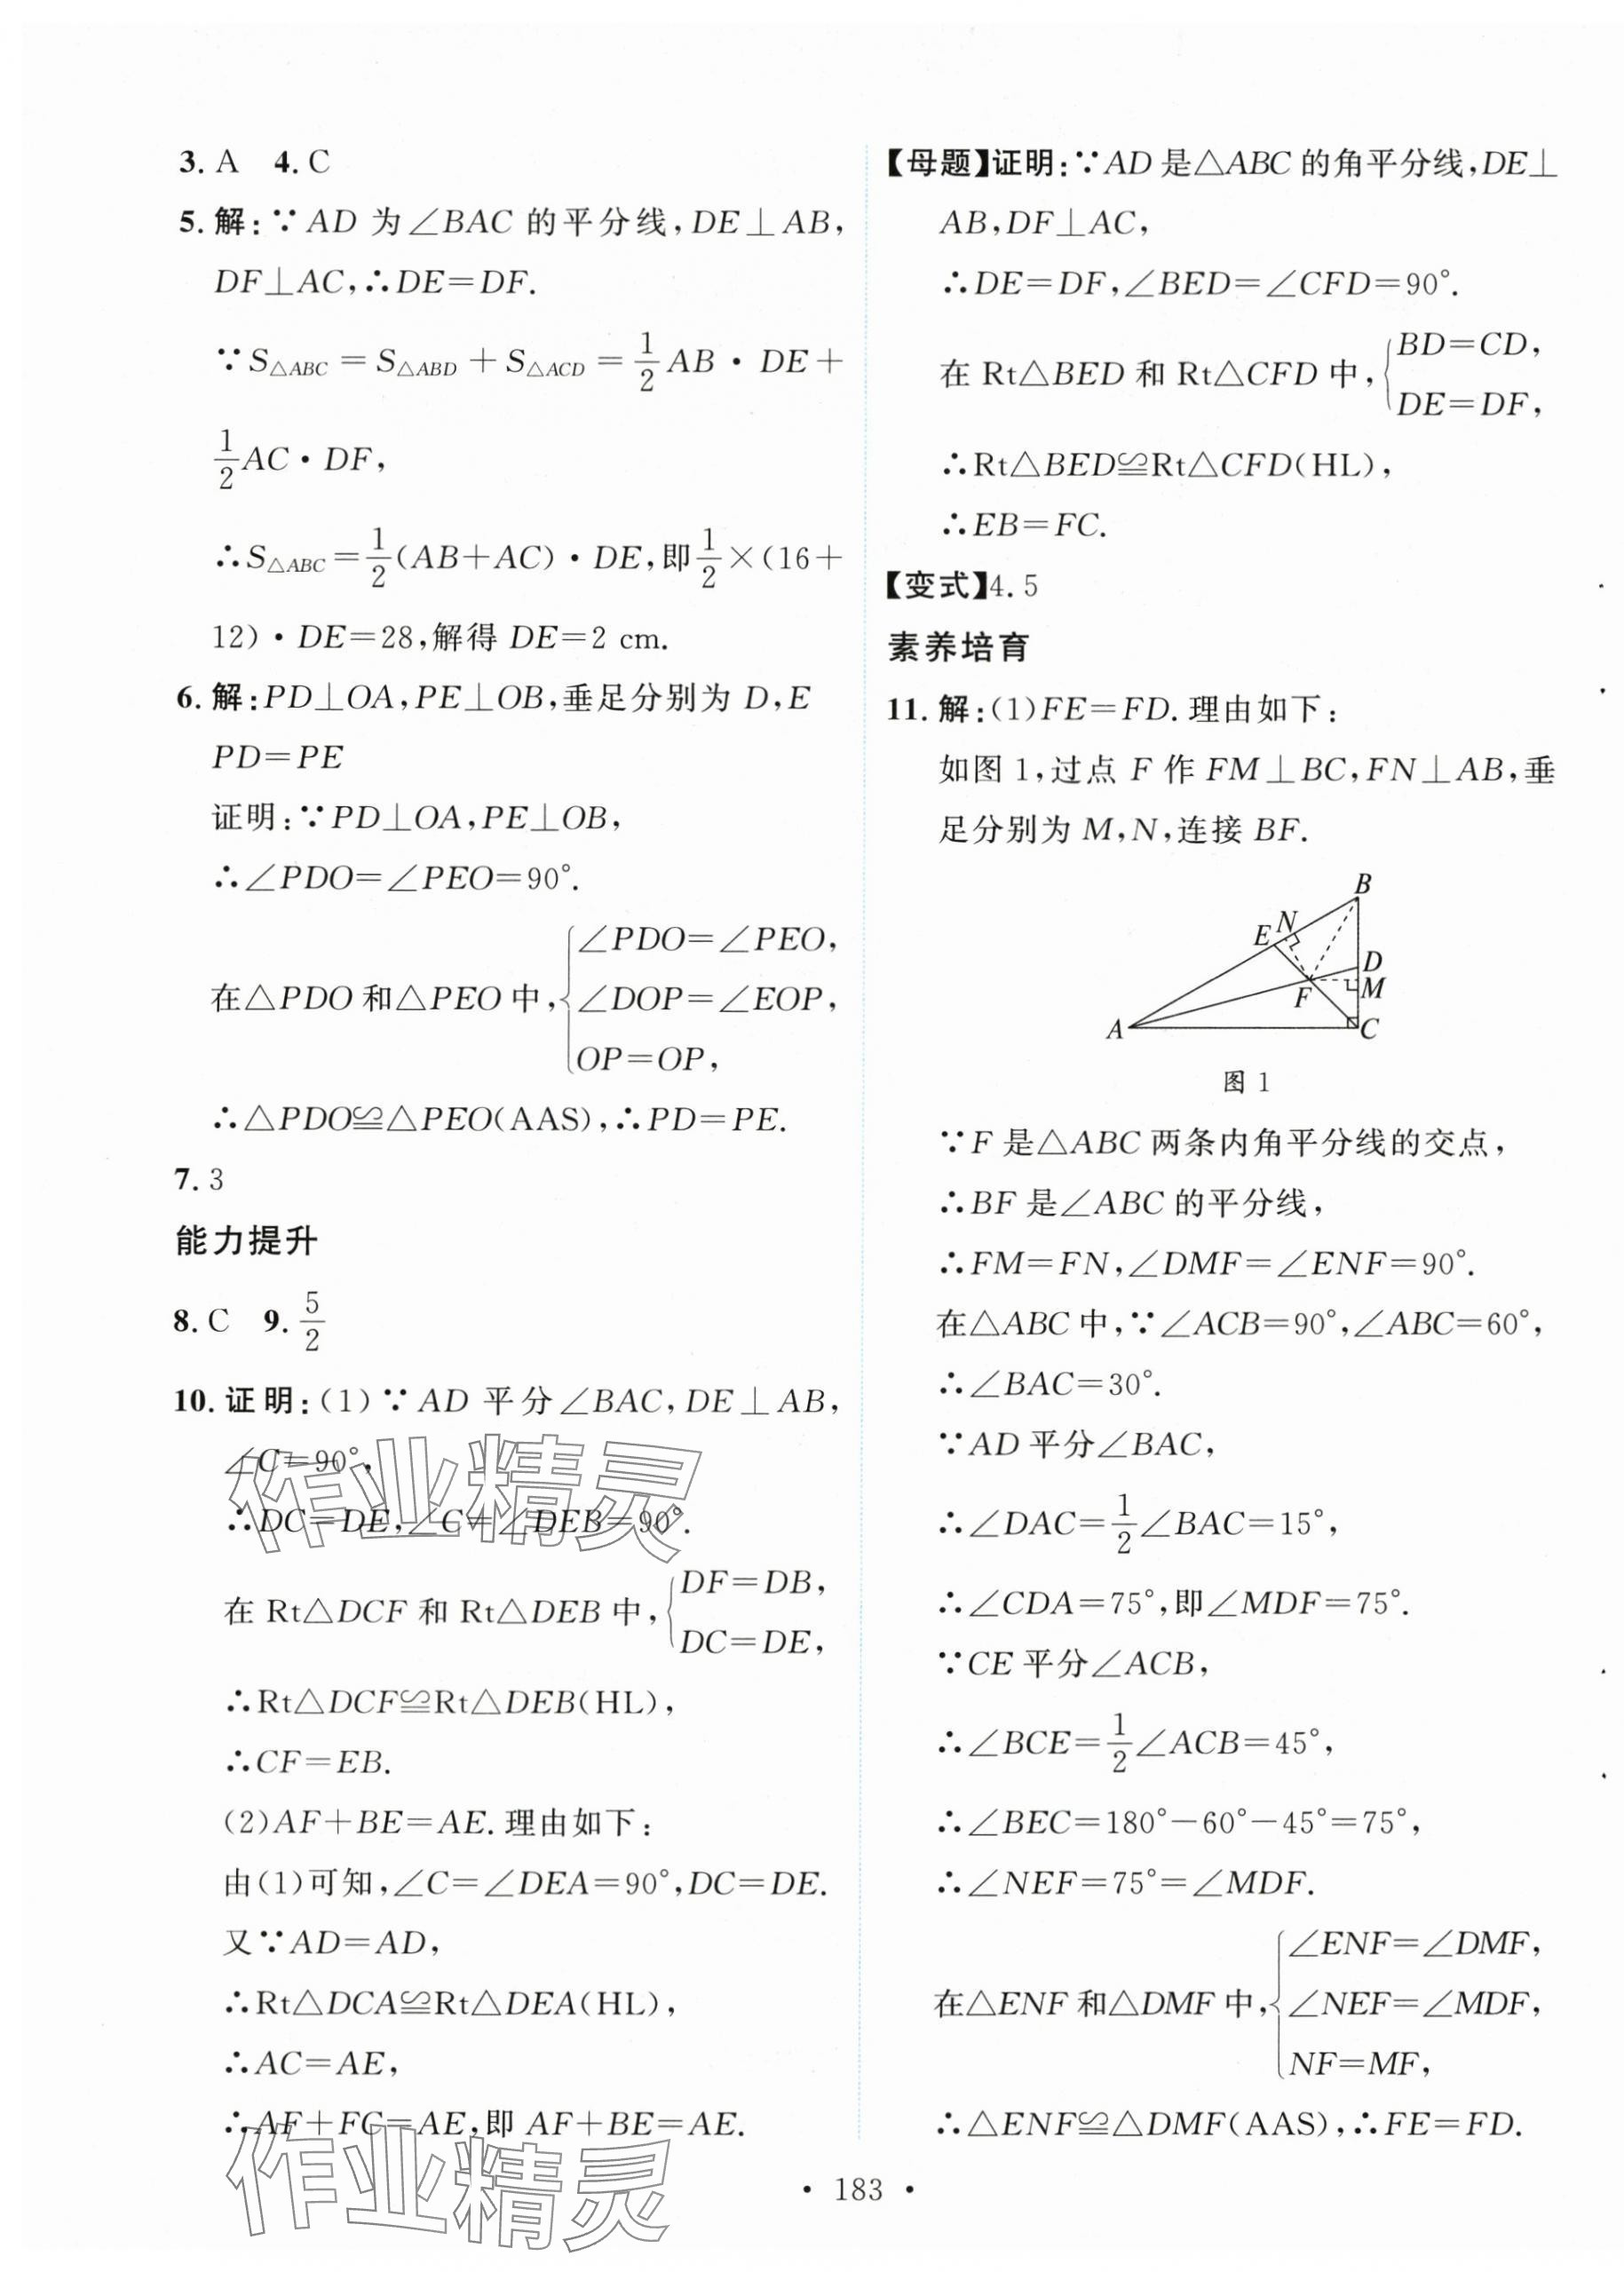 3. A 4. C
5. 解:∵AD 为∠BAC 的平分线,DE⊥AB,
DF⊥AC,∴DE=DF.
∵S△ABC=S△ABD+S△ACD=1/2AB·DE+
1/2AC·DF,
∴S△ABC=1/2(AB+AC)·DE,即1/2×(16+
12)·DE=28,解得 DE=2 cm.
6. 解:PD⊥OA,PE⊥OB,垂足分别为 D,E
PD=PE
证明:∵PD⊥OA,PE⊥OB,
∴∠PDO=∠PEO=90°.
在△PDO 和△PEO 中,{∠PDO=∠PEO,
∠DOP=∠EOP,
OP=OP,
∴△PDO≌△PEO(AAS),∴PD=PE.
7. 3
能力提升
8. C 9. 5/2
10. 证明:(1)∵AD 平分∠BAC,DE⊥AB,
∠C=90°,
∴DC=DE,∠C=∠DEB=90°.
在 Rt△DCF 和 Rt△DEB 中,{DF=DB,
DC=DE,
∴Rt△DCF≌Rt△DEB(HL),
∴CF=EB.
(2)AF+BE=AE.理由如下:
由(1)可知,∠C=∠DEA=90°,DC=DE.
又∵AD=AD,
∴Rt△DCA≌Rt△DEA(HL),
∴AC=AE,
∴AF+FC=AE,即 AF+BE=AE.
【母题】证明:∵AD 是△ABC 的角平分线,DE⊥
AB,DF⊥AC,
∴DE=DF,∠BED=∠CFD=90°.
在 Rt△BED 和 Rt△CFD 中,{BD=CD,
DE=DF,
∴Rt△BED≌Rt△CFD(HL),
∴EB=FC.
【变式】4.5
素养培育
11. 解:(1)FE=FD.理由如下:
如图 1,过点 F 作 FM⊥BC,FN⊥AB,垂
足分别为 M,N,连接 BF.
B
N
E
D
M
F
A
C
图 1
∵F 是△ABC 两条内角平分线的交点,
∴BF 是∠ABC 的平分线,
∴FM=FN,∠DMF=∠ENF=90°.
在△ABC 中,∵∠ACB=90°,∠ABC=60°,
∴∠BAC=30°.
∵AD 平分∠BAC,
∴∠DAC=1/2∠BAC=15°,
∴∠CDA=75°,即∠MDF=75°.
∵CE 平分∠ACB,
∴∠BCE=1/2∠ACB=45°,
∴∠BEC=180°-60°-45°=75°,
∴∠NEF=75°=∠MDF.
在△ENF 和△DMF 中,{∠ENF=∠DMF,
∠NEF=∠MDF,
NF=MF,
∴△ENF≌△DMF(AAS),∴FE=FD.
·183·
作业精灵
作业精灵